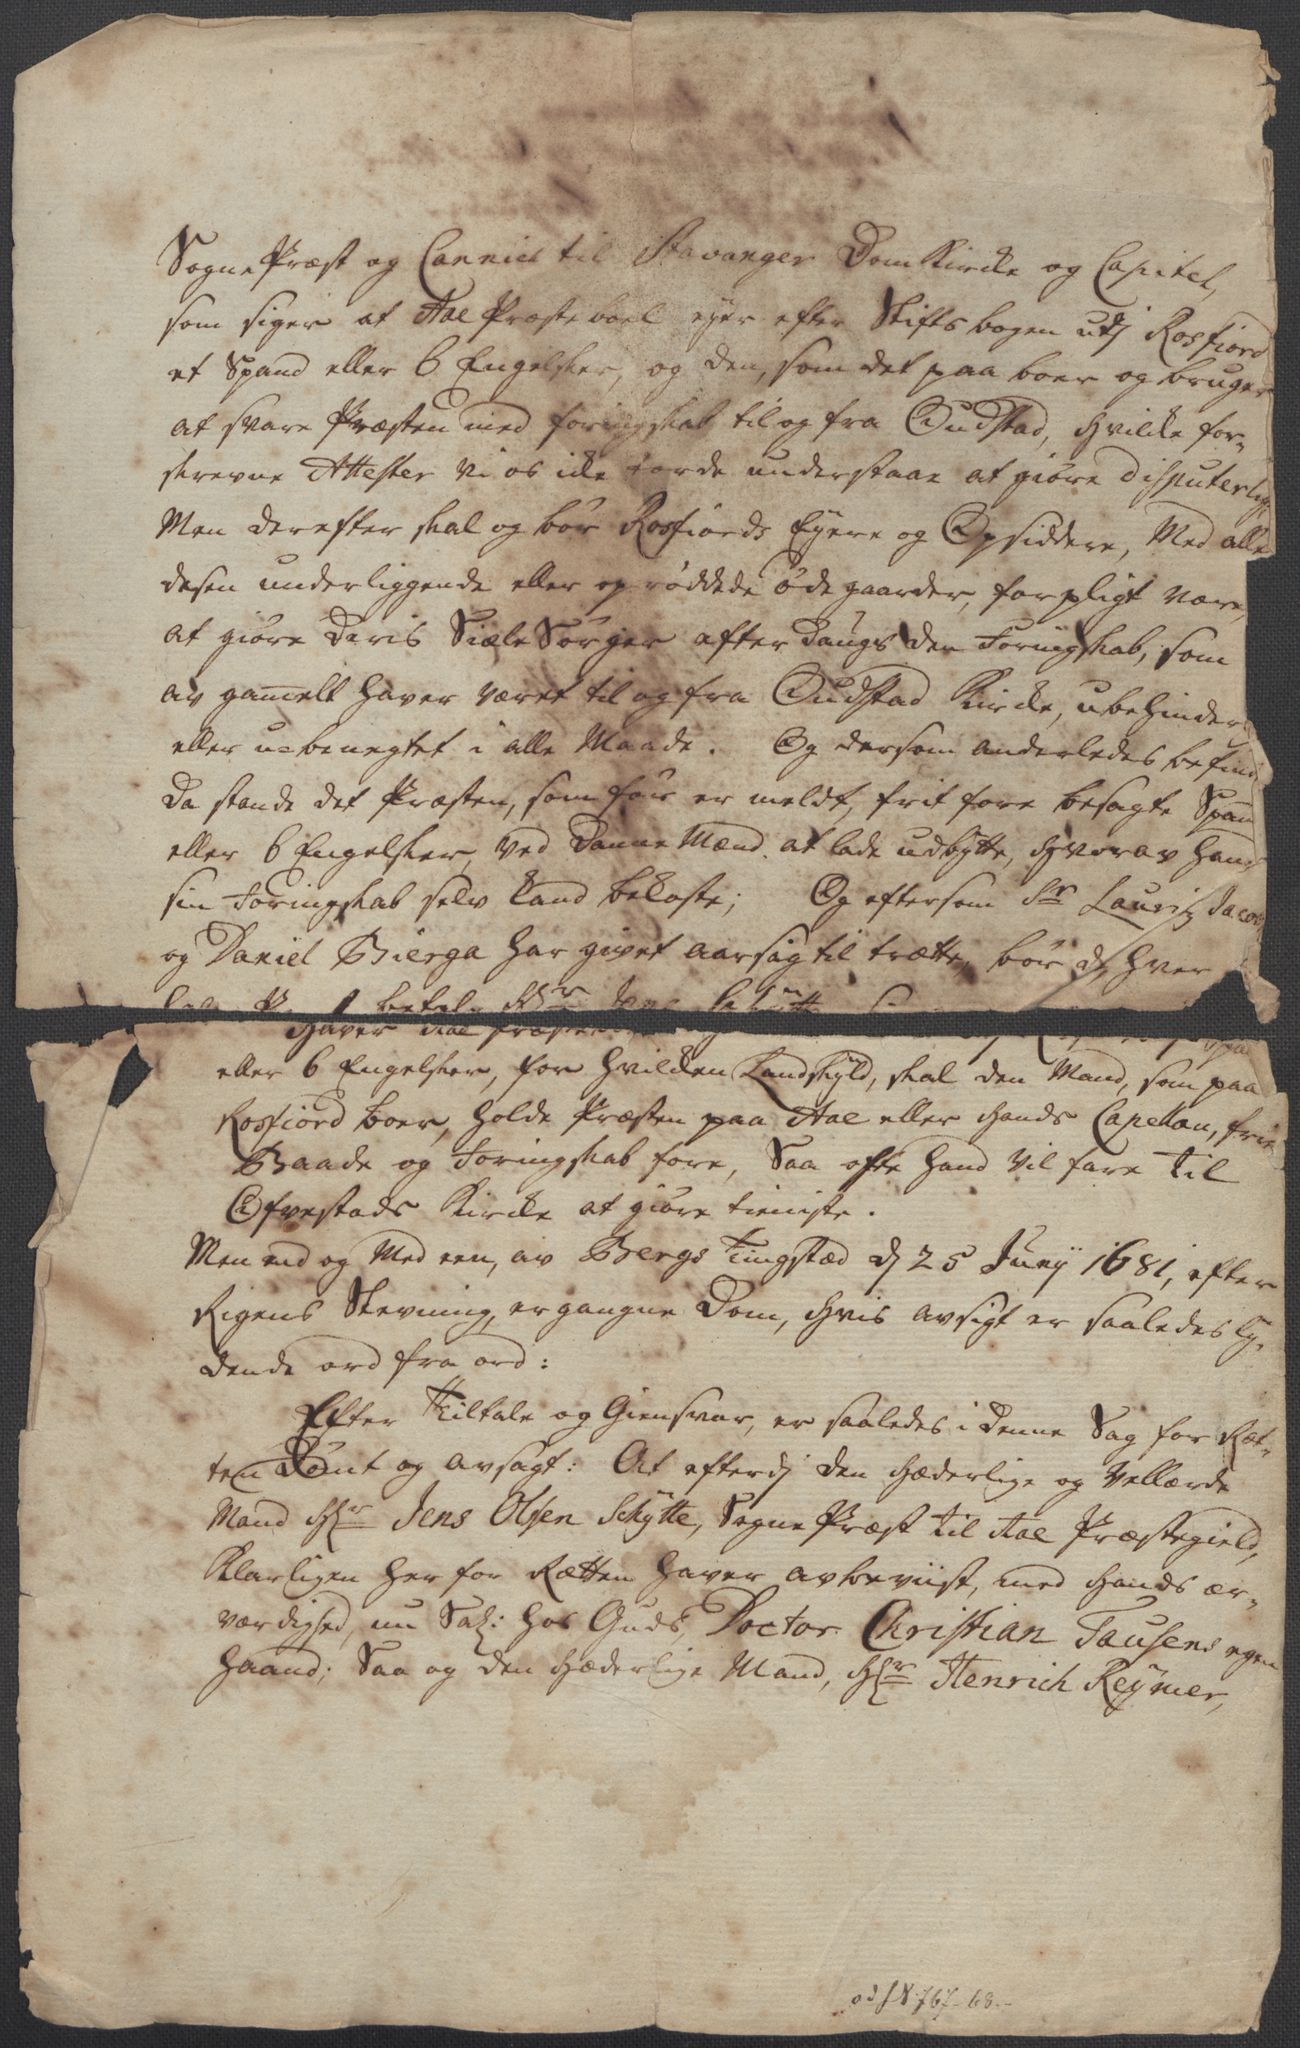 Sogne Præst og Cannich til Stavanger Dom Kircke og Capitel,
som siger at Aae Præsteboel eyer efter Stiftsbogen udj Rosfiord
et Spand eller 6 Engelsker, og den, som det paa boer og bruger
at svare Præsten med foringskab til og fra Oudstad, hvilcke for-
skrevne Attester vi os icke torde understaae at giöre disputerlig
Men derefter skal og bör Rosfiords Eyere og Opsiddere, Med alle
desen underliggende eller op röddede öde gaarder, forpligt være,
at giöre deris Siæle Sörger efter dangs den Foringskab, som
av gamelt haver været til og fra Oudstad Kircke, ubehinder
eller u-benegtet i alle Maade. Og dersom anderledes befind
da stande det Præsten, som för er meldt, frit fore besagte Span
eller 6 Engelsker, ved Danne Mænd at lade udbytte, hvorav hand
sin Foringskab selv kand bekoste; Og eftersom Sr Lauritz Jacob
og Daniel Bierga har givet aarsag til trætte, bör dj hver
betal Hr Jens
haver Aae Præste
eller 6 Engelsker, for hvilcken Landskyld, skal den Mand, som paa
Rosfiord boer, holde Præsten paa Aae eller hands Capellan, frie
Baade og Foringskab fore, Saa ofte hand vil fare til
Ofvestads Kircke at giöre tieniste.
Men end og Med een, av Bergs Tingstæd dj 25 Junij 1681, efter
Rigens Stevning, ergangne Dom, hvis avsigt er saaledes ly-
dende ord fra ord:
Efter Tiltale og Giensvar, er saaledes i denne Sag for Ræt-
ten Dömt og avsagt: At efterdj den hæderlige og Vellærde
Mand Hr Jens Olsen Schytte, Sogne Præst til Aae Præstegield,
Klarligen her for Rætten haver avbeviist, med hands ær-
værdighed, nu Sal: hos Guds, Doctor Christian Tausens egen
haand; Saa og den hæderlige Mand, Hr Henrich Reymer,
767-68.-